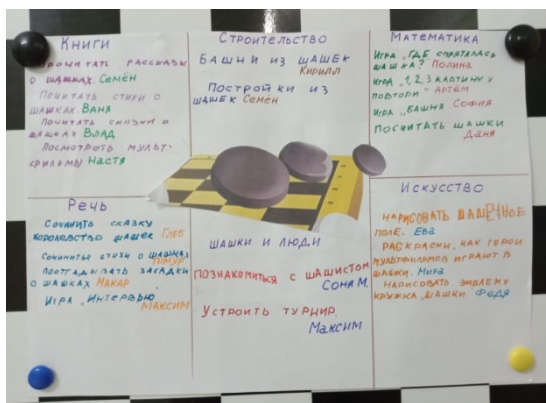 Книги
Прочитать рассказы
о шашках. Семён
Почитать стихи о
шашках. Ваня
Почитать сказки о
шашках Влад
Посмотреть мульт-
фильмы Настя
Строительство
Башни из шашек
Кирилл
Постройки из
шашек Семён
Математика
Игра „Где спряталась
шашка? Полина
Игра „1, 2, 3 картину
повтори" Артём
Игра „Башня София
Посчитать шашки
Даня
Речь
Сочинить сказку
королевство шашек Глеб
Сочинить стихи о шашках
Тимур
Поотгадывать загадки
о шашках Макар
Игра „Интервью"
Максим
Шашки и люди
Познакомиться с шашистом
Соня М.
Устроить турнир.
Максим
Искусство
Нарисовать шашечное
поле. Ева
Раскраски, как герои
мультфильмов играют в
шашки. Мира
Нарисовать эмблему
кружка „Шашки Федя